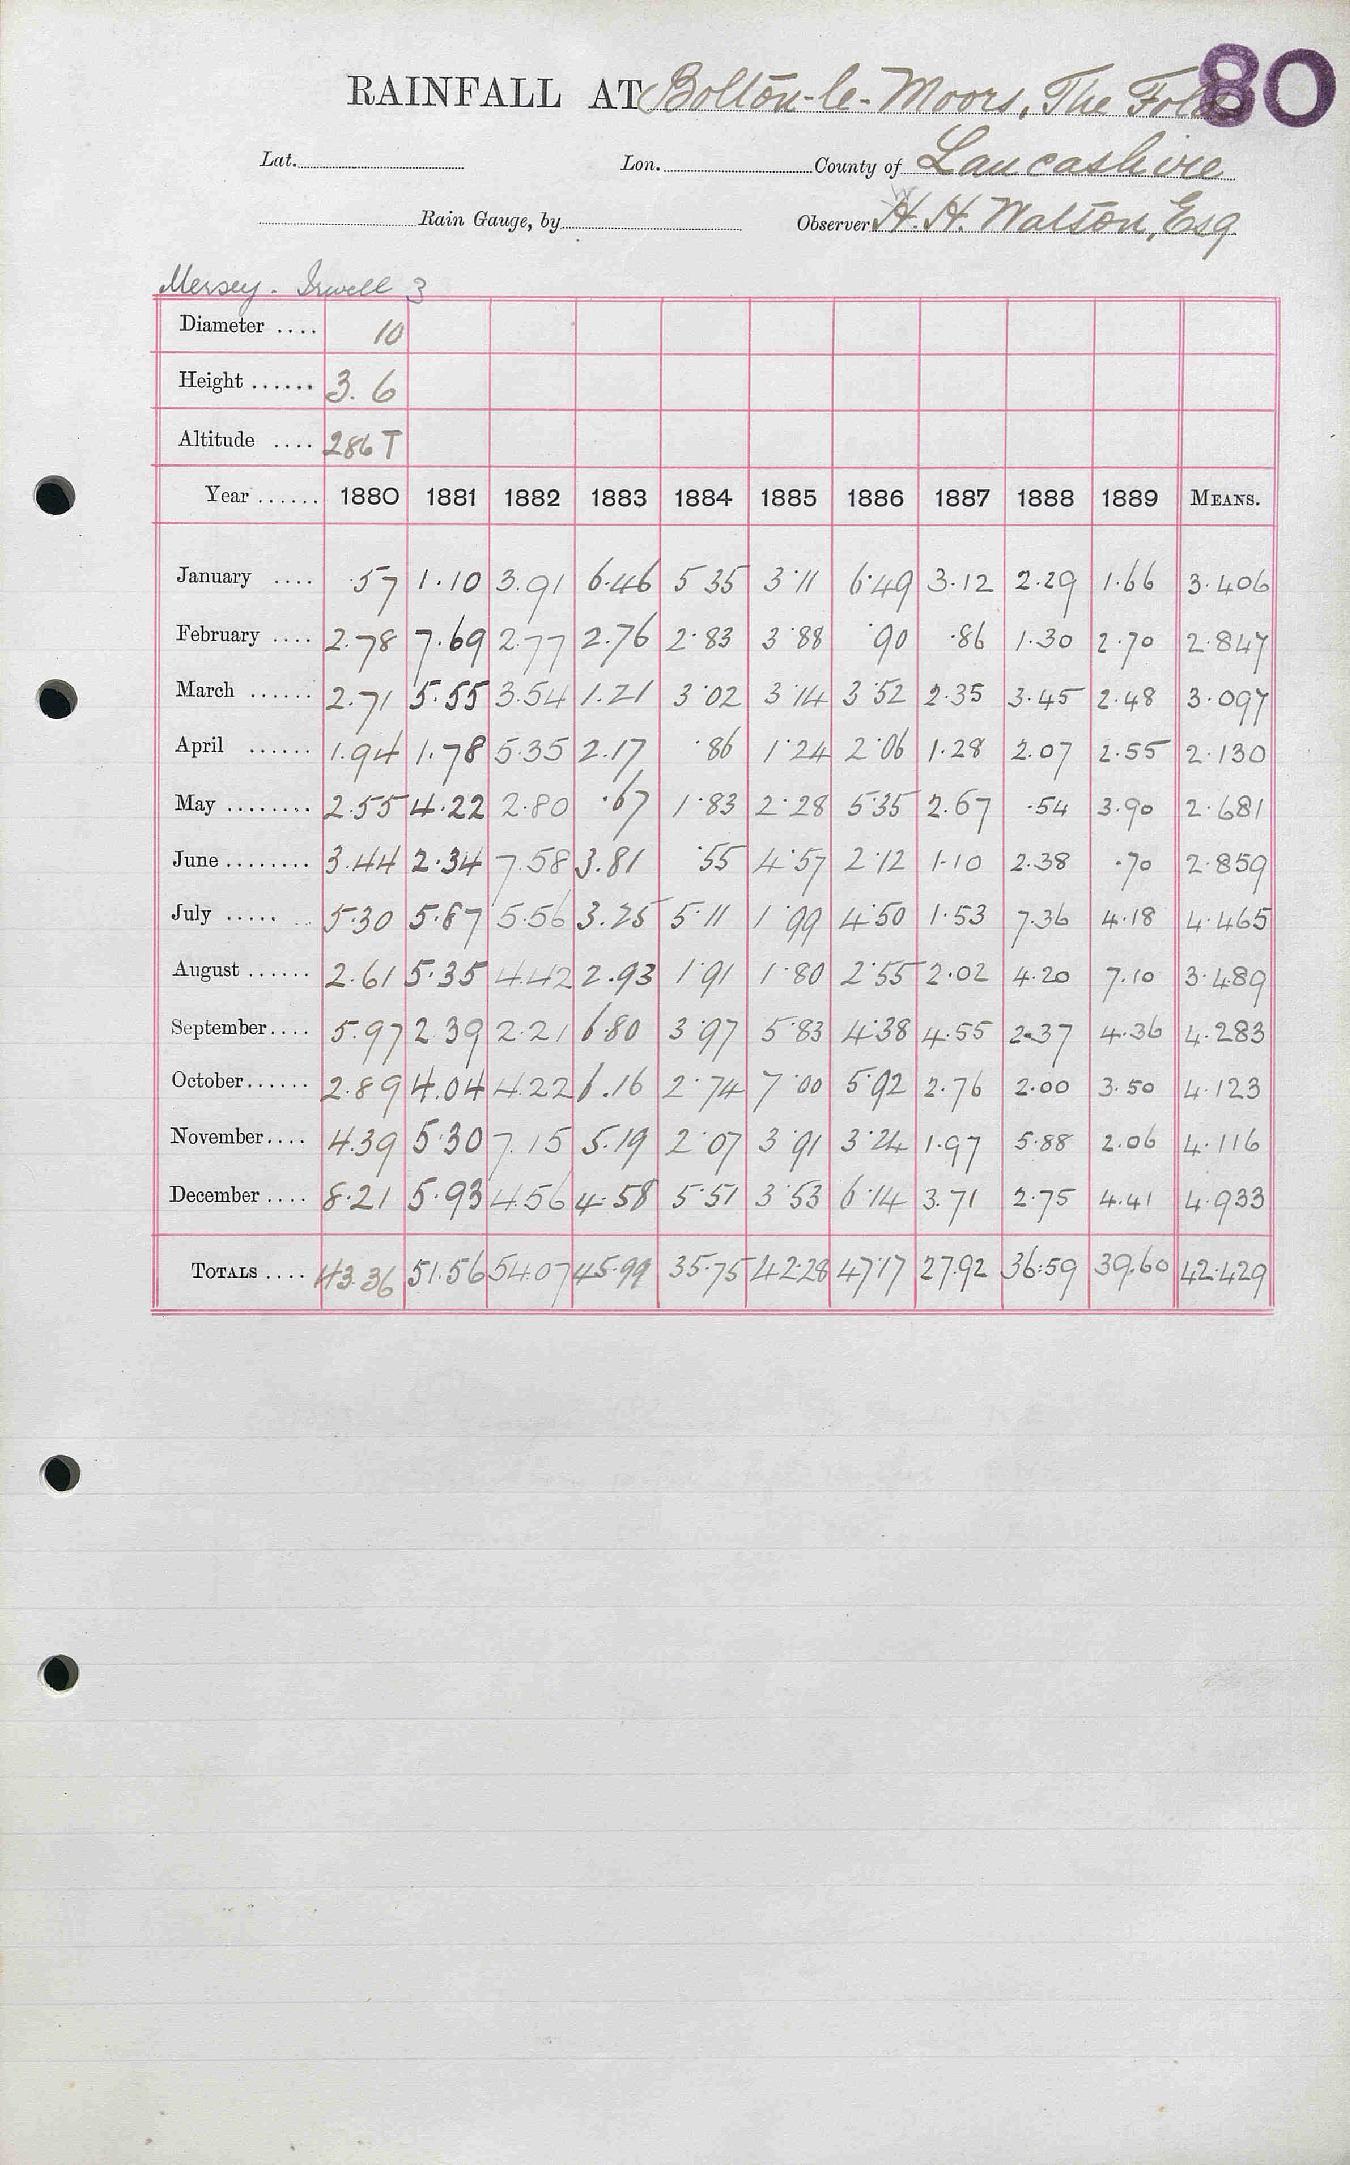 80
RAINFALL AT Bolton-le-Moors, The Fold
Lat. Lon. County of Lancashire
Rain Gauge, by Observer H. H. Watson, Esq
Mersey. Irwell 3
Diameter .... 10
Height ...... 3. 6
Altitude .... 286 T
Year ...... 1880 1881 1882 1883 1884 1885 1886 1887 1888 1889 MEANS.
January .... .57 1.10 3.91 6.46 5 35 3.11 6.49 3.12 2.29 1.66 3.406
February .... 2.78 7.69 2.77 2.76 2.83 3.88 .90 .86 1.30 2.70 2.847
March ...... 2.71 5.55 3.54 1.21 3.02 3.14 3.52 2.35 3.45 2.48 3.097
April ...... 1.94 1.78 5.35 2.17 .86 1.24 2.06 1.28 2.07 2.55 2.130
May ........ 2.55 4.22 2.80 .67 1.83 2.28 5.35 2.67 .54 3.90 2.681
June ........ 3.44 2.34 7.58 3.81 .55 4.57 2.12 1.10 2.38 .70 2.859
July ..... .. 5.30 5.87 5.56 3.25 5.11 1.99 4.50 1.53 7.36 4.18 4.465
August ...... 2.61 5.35 4.42 2.93 1.91 1.80 2.55 2.02 4.20 7.10 3.489
September.... 5.97 2.39 2.21 6.80 3.97 5.83 4.38 4.55 2.37 4.36 4.283
October...... 2.89 4.04 4.22 6.16 2.74 7.00 5.92 2.76 2.00 3.50 4.123
November.... 4.39 5.30 7.15 5.19 2.07 3.91 3.24 1.97 5.88 2.06 4.116
December .... 8.21 5.93 4.56 4.58 5.51 3.53 6.14 3.71 2.75 4.41 4.933
TOTALS .... 43.36 51.56 54.07 45.99 35.75 42.28 47.17 27.92 36.59 39.60 42.429